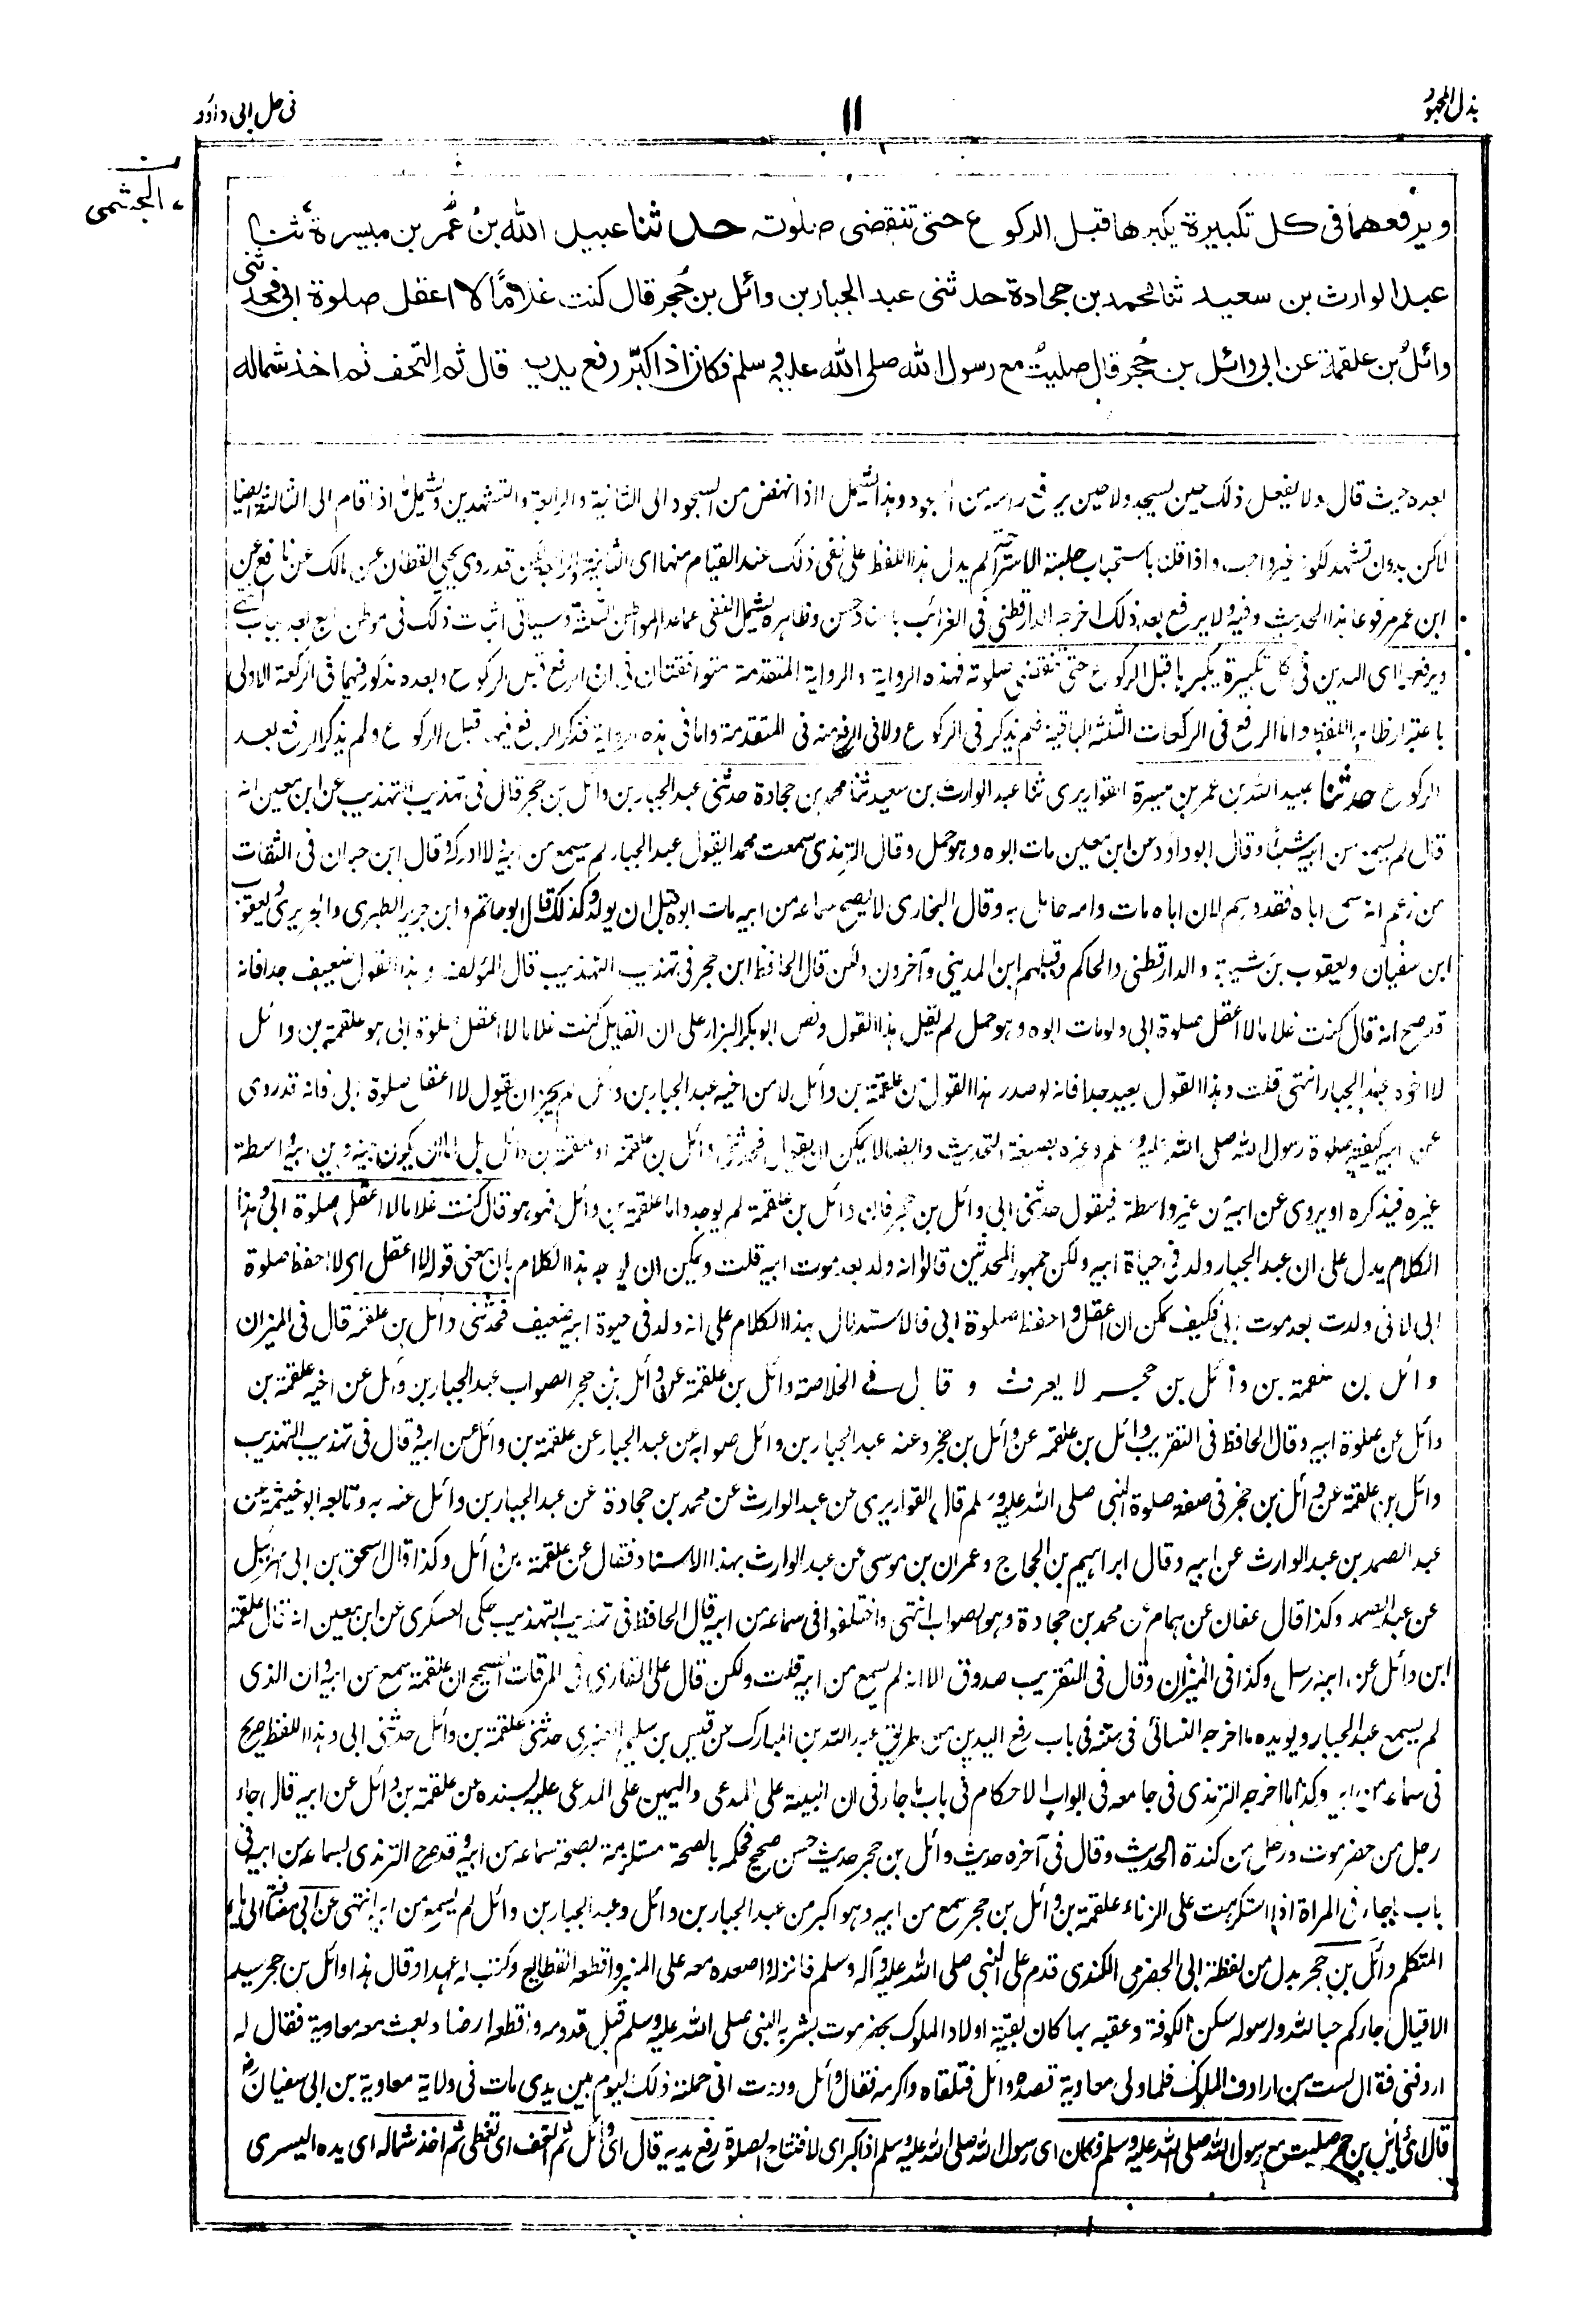 بذل المجهود
۱۱
فى حل ابى داؤد
الجشمى
ويرفعهما فى كل تكبيرة يكبرها قبل الركوع حتى تنقضى صلوته حدثنا عبيد الله بن عمر بن ميسرة ثنا
عبد الوارث بن سعيد ثنا محمد بن جحادة حدثنى عبد الجبار بن وائل بن حجر قال كنت غلاما لا اعقل صلوة ابى فحدثنى
وائل بن علقمة عن ابى وائل بن حجر قال صليت مع رسول الله صلى الله عليه وسلم فكان اذا كبر رفع يديه قال ثم التحف ثم اخذ شماله
بعده حيث قال ولا يفعل ذلك حين يسجد ولا حين يرفع راسه من السجود وهذا يشمل اذا نهض من السجود الى الثانية والرابعة والتشهدين ويشمل اذا قام الى الثالثة ايضا
لكن بدون تشهد لكونه غير واجب واذا قلنا باستحباب جلسة الاستراحة لم يدل هذا اللفظ على نفى ذلك عند القيام منها اى الثانية والرابعة لكن قد روى يحيى القطان عن مالك عن نافع عن
ابن عمر مرفوعا هذا الحديث وفيه ولا يرفع بعد ذلك اخرجه الدارقطنى فى الغرائب باسناد حسن وظاهره يشمل النفى عما عدا المواطن الثلثة وسياتى اثبات ذلك فى موطن رابع بعد باب اھ
ويرفعهما اى اليدين فى كل تكبيرة يكبرها قبل الركوع حتى تنقضى صلوته فهذه الرواية والرواية المتقدمة متوافقتان فى ان الرفع قبل الركوع وبعده مذكور فيهما فى الركعة الاولى
باعتبار ظاهر اللفظ واما الرفع فى الركعات الثلثة الباقية فلم يذكر فى الركوع ولا فى الرفع منه فى المتقدمة واما فى هذه الرواية فذكر الرفع فيها قبل الركوع ولم يذكر الرفع بعد
الركوع حدثنا عبيد الله بن عمر بن ميسرة القواريرى ثنا عبد الوارث بن سعيد ثنا محمد بن جحادة حدثنى عبد الجبار بن وائل بن حجر قال فى تهذيب التهذيب عن ابن معين انه
قال لم يسمع من ابيه شيئا وقال ابو داؤد عن ابن معين مات ابوه وهو حمل وقال الترمذى سمعت محمدا يقول عبد الجبار لم يسمع من ابيه ولا ادركه وقال ابن حبان فى الثقات
من زعم انه سمع اباه فقد وهم لان اباه مات وامه حامل به وقال البخارى لا يصح سماعه من ابيه مات ابوه قبل ان يولد وكذلك قال ابو حاتم وابن جرير الطبرى والجريرى ويعقوب
ابن سفيان ويعقوب بن شيبة والدارقطنى والحاكم وقبلهم ابن المدينى وآخرون ولكن قال الحافظ ابن حجر فى تهذيب التهذيب قال المؤلف وهذا القول ضعيف جدا فانه
قد صح انه قال كنت غلاما لا اعقل صلوة ابى ولو مات ابوه وهو حمل لم يقل هذا القول ونص ابو بكر البزار على ان القايل كنت غلاما لا اعقل صلوة ابى هو علقمة بن وائل
لا اخوه عبد الجبار انتهى قلت وهذا القول بعيد جدا فانه لو صدر هذا القول من علقمة بن وائل لا من اخيه عبد الجبار بن وائل لم يجز ان يقول لا اعقل صلوة ابى فانه قد روى
عن ابيه كيفية صلوة رسول الله صلى الله عليه وسلم وغيره بصيغة التحديث وايضا لا يمكن ان يقول فحدثنى وائل بن علقمة او علقمة بن وائل بل اما ان يكون بينه وبين ابيه واسطة
غيره فيذكره او يروى عن ابيه من غير واسطة فيقول حدثنى ابى وائل بن حجر فاين وائل بن علقمة لم يوجد واما علقمة بن وائل فهو هو قال كنت غلاما لا اعقل صلوة ابى وهذا
الكلام يدل على ان عبد الجبار ولد فى حياة ابيه ولكن جمهور المحدثين قالوا انه ولد بعد موت ابيه قلت ويمكن ان يوجه هذا الكلام بان معنى قوله لا اعقل اى لا احفظ صلوة
ابى لانى ولدت بعد موت ابى فكيف يمكن ان اعقل واحفظ صلوة ابى فالاستدلال بهذا الكلام على انه ولد فى حيوة ابيه ضعيف فحدثنى وائل بن علقمة قال فى الميزان
وائل بن علقمة بن وائل بن حجر لا يعرف وقال فى الخلاصة وائل بن علقمة عن وائل بن حجر الصواب عبد الجبار بن وائل عن اخيه علقمة بن
وائل عن صلوة ابيه وقال الحافظ فى التقريب وائل بن علقمة عن وائل بن حجر وعنه عبد الجبار بن وائل صوابه عن عبد الجبار عن علقمة بن وائل عن ابيه وقال فى تهذيب التهذيب
وائل بن علقمة عن وائل بن حجر فى صفة صلوة النبى صلى الله عليه وسلم قال القواريرى عن عبد الوارث عن محمد بن جحادة عن عبد الجبار بن وائل عنه به وتابعه ابو خيثمة عن
عبد الصمد بن عبد الوارث عن ابيه وقال ابراهيم بن الحجاج وعمران بن موسى عن عبد الوارث بهذا الاسناد فقال عن علقمة بن وائل وكذا قال اسحق بن ابى اسرائيل
عن عبد الصمد وكذا قال عفان عن همام عن محمد بن جحادة وهو الصواب انتهى واختلفوا فى سماعه من ابيه قال الحافظ فى تهذيب التهذيب حكى العسكرى عن ابن معين انه قال علقمة
ابن وائل عن ابيه مرسل وكذا فى الميزان وقال فى التقريب صدوق الا انه لم يسمع من ابيه قلت ولكن قال على القارى فى المرقات الصحيح ان علقمة سمع من ابيه وان الذى
لم يسمع عبد الجبار ويؤيده ما اخرجه النسائى فى سننه فى باب رفع اليدين من طريق عبد الله بن المبارك عن قيس بن سليم العنبرى حدثنى علقمة بن وائل حدثنى ابى وهذا اللفظ صريح
فى سماعه من ابيه وكذا ما اخرجه الترمذى فى جامعه فى ابواب الاحكام فى باب ما جاء فى ان البينة على المدعى واليمين على المدعى عليه بسنده عن علقمة بن وائل عن ابيه قال جاء
رجل من حضرموت ورجل من كندة الحديث وقال فى آخره حديث وائل بن حجر حديث حسن صحيح فحكمه بالصحة مستلزمة بصحة سماعه من ابيه وقد صرح الترمذى بسماعه من ابيه فى
باب ما جاء فى المراة اذا استكرهت على الزناء علقمة بن وائل بن حجر سمع من ابيه وهو اكبر من عبد الجبار بن وائل وعبد الجبار بن وائل لم يسمع من ابيه انتهى عن ابى مضافا الى ياء
المتكلم وائل بن حجر بدل من لفظة ابى الحضرمى الكندى قدم على النبى صلى الله عليه وآله وسلم فانزله واصعده معه على المنبر واقطعه القطايع وكتب له عهدا وقال هذا وائل بن حجر سيد
الاقيال جاركم حبا لله ولرسوله سكن الكوفة وعقبه بها كان بقية اولاد الملوك بحضرموت بشر به النبى صلى الله عليه وسلم قبل قدومه واقطعه ارضا وبعث معه معاوية فقال له
اردفنى فقال لست من ارداف الملوك فلما ولى معاوية قصده وائل فتلقاه واكرمه فقال وائل وددت انى حملته ذلك اليوم بين يدى مات فى ولاية معاوية بن ابى سفيان رض
قال اى وائل بن حجر صليت مع رسول الله صلى الله عليه وسلم فكان اى رسول الله صلى الله عليه وسلم اذا كبر اى لافتتاح الصلوة رفع يديه قال اى وائل ثم التحف اى تغطى ثم اخذ شماله اى يده اليسرى